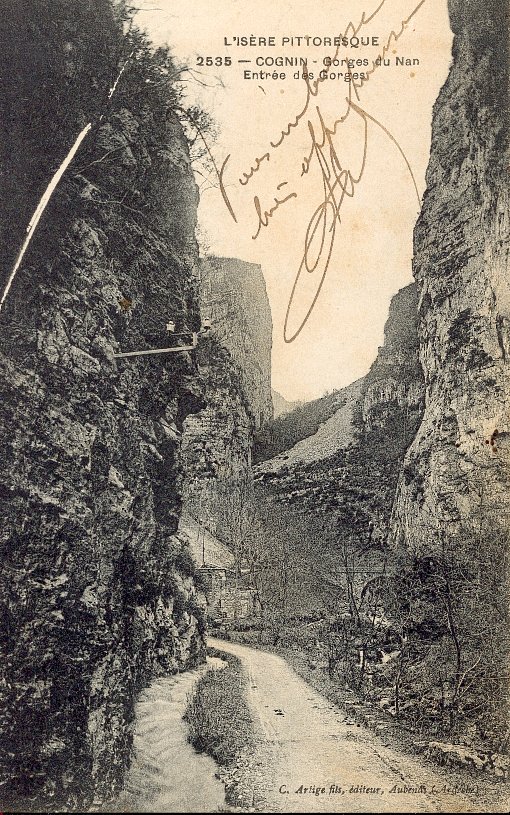 L'ISÈRE PITTORESQUE
2535 — COGNIN - Gorges du Nan
Entrée des Gorges
Vous embrasse
bien affectueusement
C. Artige fils, éditeur, Aubenas (Ardèche)